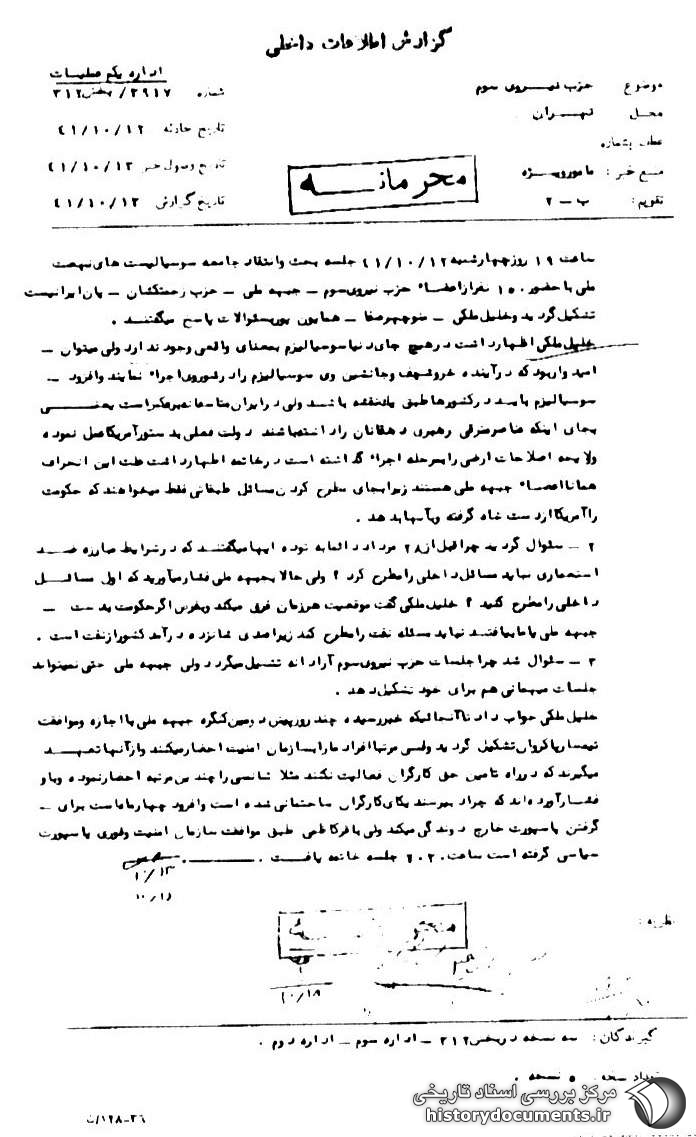 گزارش اطلاعات داخلی
اداره یکم عملیات
موضوع حزب نیروی سوم
شماره ۲۹۱۷/بخش ۳۱۲
محل تهران
تاریخ حادثه ۴۱/۱۰/۱۲
عطف بشماره
تاریخ وصول خبر ۴۱/۱۰/۱۳
منبع خبر: مامور ویژه
تاریخ گزارش ۴۱/۱۰/۱۳
تقویم: ب – ۲
محرمانه
ساعت ۱۹ روز چهارشنبه ۴۱/۱۰/۱۲ جلسه بحث و انتقاد جامعه سوسیالیست های نهضت
ملی با حضور ۱۵۰ نفر از اعضاء حزب نیروی سوم – جبهه ملی – حزب زحمتکشان – پان ایرانیست
تشکیل گردید و خلیل ملکی – منوچهر صفا – همایون پور بسئوالات پاسخ میگفتند .
خلیل ملکی اظهار داشت در هیچ جای دنیا سوسیالیزم بمعنای واقعی وجود ندارد ولی میتوان –
امیدوار بود که در آینده خروشچف و جانشین وی سوسیالیزم را در شوروی اجراء نمایند و افزود –
سوسیالیزم باید در کشورها طبق نقشه باشد ولی در ایران متاسفانه برعکس است یعنی
بجای اینکه عناصر مترقی رهبری دهقانان را داشته باشند دولت فعلی بدستور آمریکا عمل نموده
و لایحه اصلاحات ارضی را بمرحله اجراء گذاشته است در خاتمه اظهار داشت علت این انحراف
همانا اعضاء جبهه ملی هستند زیرا بجای مطرح کردن مسائل طبقاتی فقط میخواهند که حکومت
را آمریکا از دست شاه گرفته و بآنها بدهد .
۲ – سئوال گردید چرا قبل از ۲۸ مرداد دائما به توده ایها میگفتند که در شرایط مبارزه ضد
استعماری نباید مسائل داخلی را مطرح کرد ؟ ولی حالا بجبهه ملی فشار میآورید که اول مسائل
داخلی را مطرح کنید ؟ خلیل ملکی گفت موقعیت هر زمان فرق میکند و بفرض اگر حکومت بدست –
جبهه ملی یا ما بیافتد نباید مسئله نفت را مطرح کند زیرا صدی شانزده درآمد کشور از نفت است .
۳ – سئوال شد چرا جلسات حزب نیروی سوم آزادانه تشکیل میگردد ولی جبهه ملی حتی نمیتواند
جلسات میهمانی هم برای خود تشکیل دهد .
خلیل ملکی جواب داد تا آنجائیکه خبر رسیده چند روز پیش دومین کنگره جبهه ملی با اجازه و موافقت
تیمسار پاکروان تشکیل گردید ولی مرتبا افراد ما را بسازمان امنیت احضار میکنند و از آنها تعهد
میگیرند که در راه تامین حق کارگران فعالیت نکنند مثلا شانسی را چندین مرتبه احضار نموده و باو
فشار آورده اند که چرا دبیر سندیکای کارگران ساختمانی شده است و افزود چهار ماه است برای –
گرفتن پاسپورت خارج دوندگی میکند ولی باقر کاظمی طبق موافقت سازمان امنیت و فوری پاسپورت
سیاسی گرفته است ساعت ۲۰۲۰ جلسه خاتمه یافت .
۱۰/۱۳
۱۰/۱۶
نظریه :
۱۰/۱۸
گیرندگان : سه نسخه در بخش ۳۱۲ – اداره سوم – اداره دوم .
تعداد نسخه : ۵ نسخه .
۳۶–۱۲۸/ت
مرکز بررسی اسناد تاریخی
historydocuments.ir